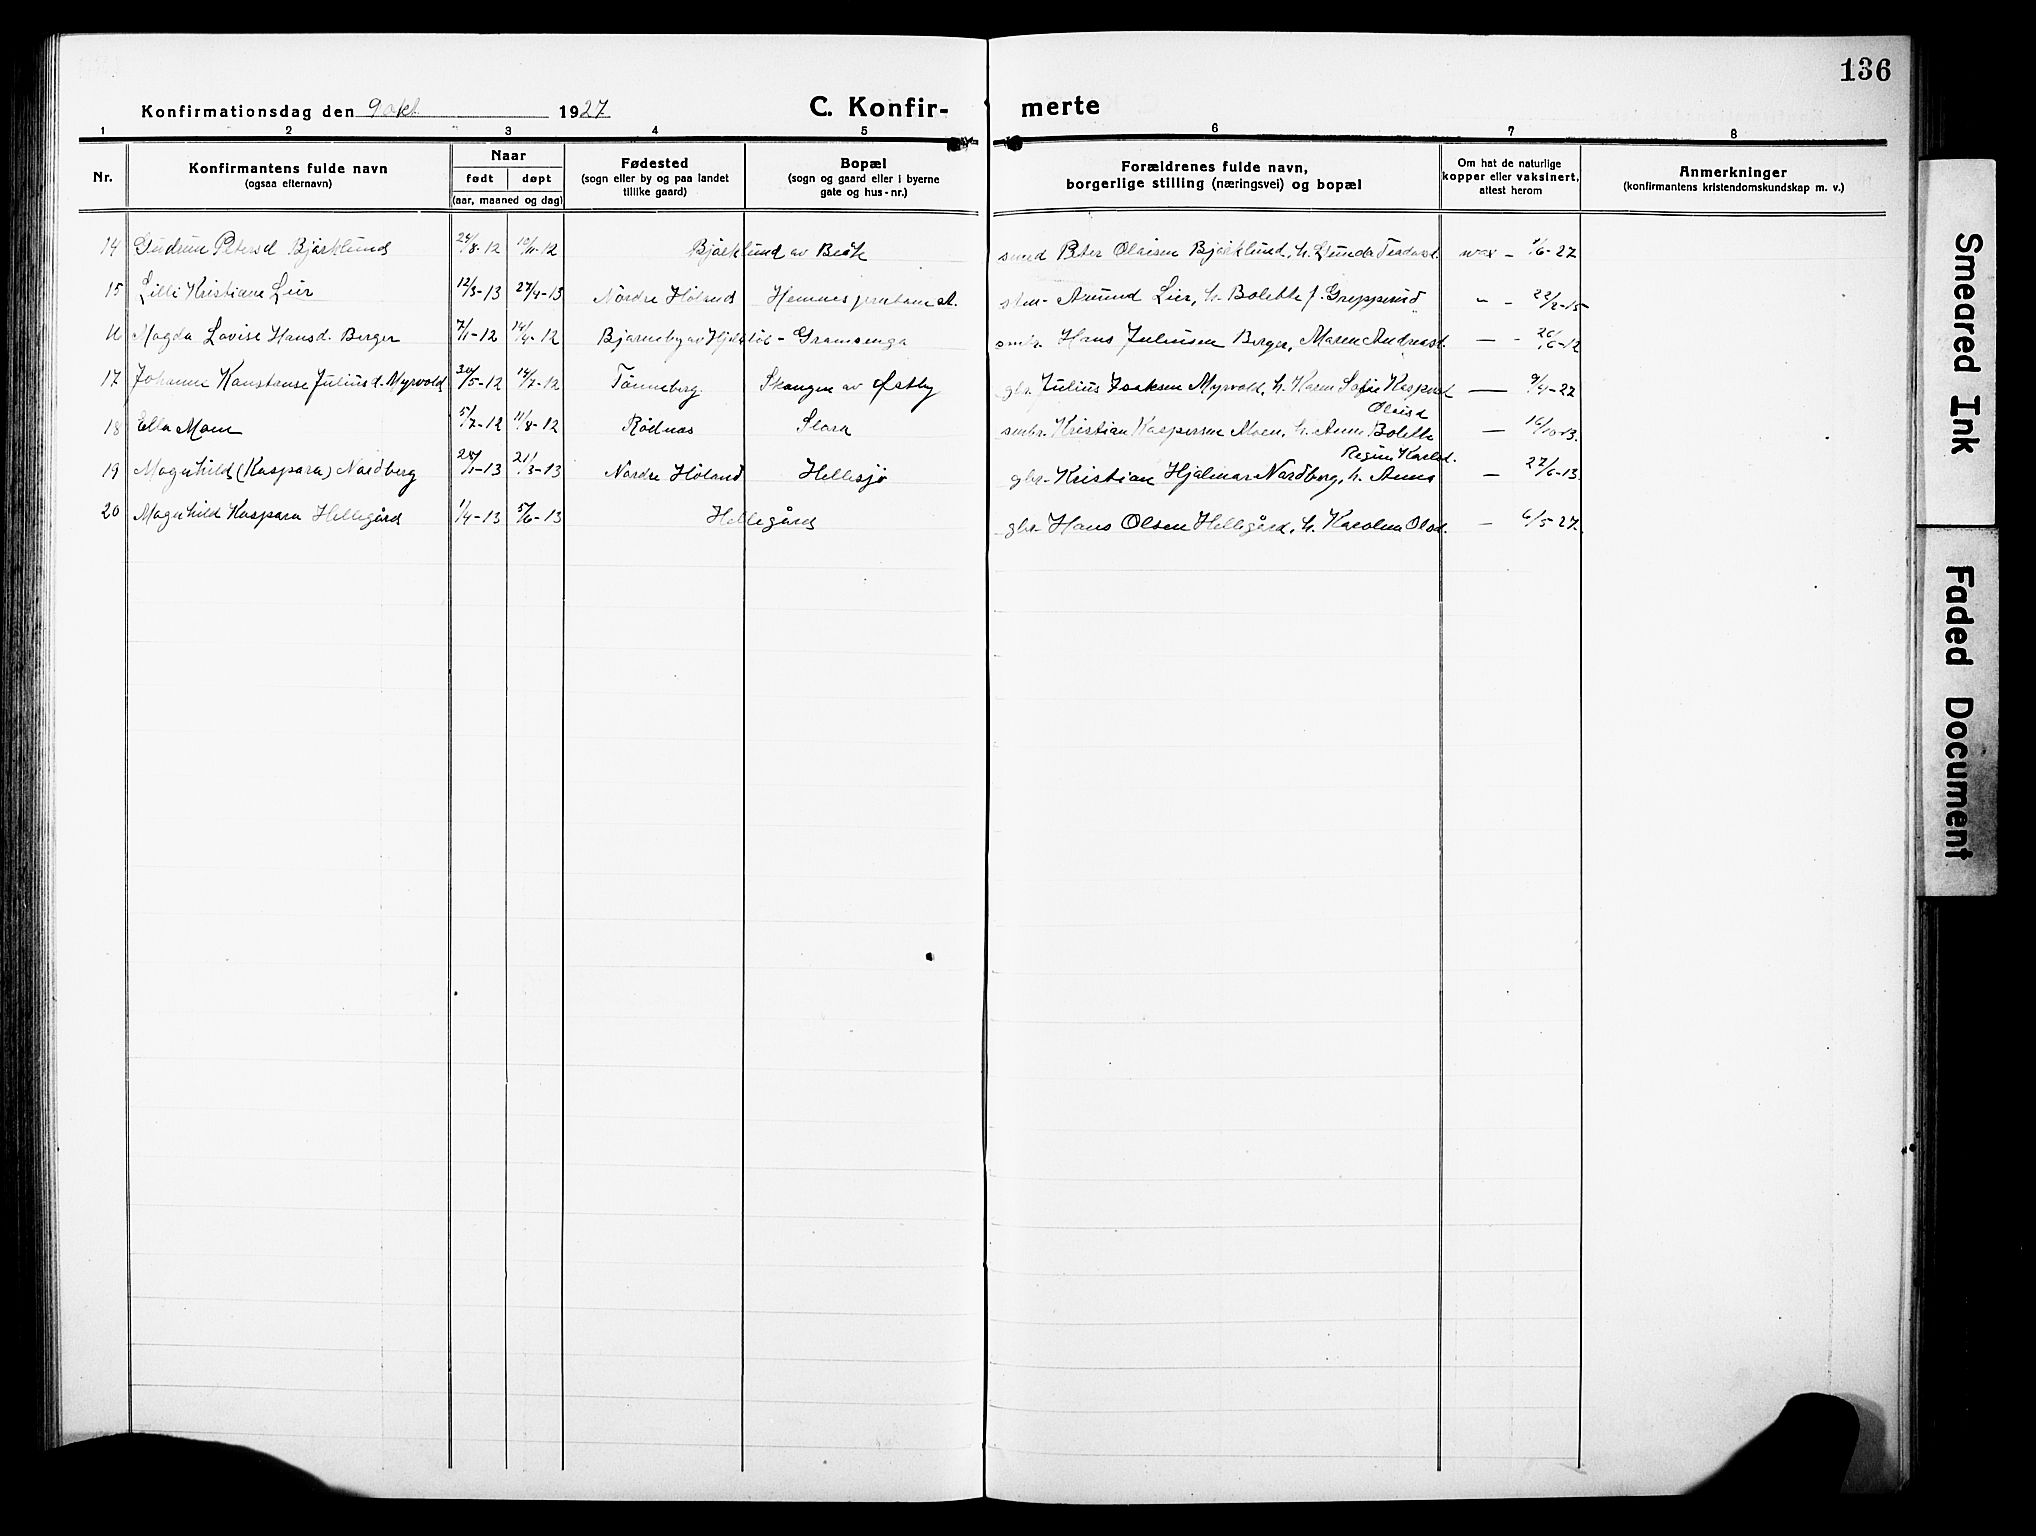 136
Konfirmationsdag den 9 okt. 1927 C. Konfir- merte
1 2 3 4 5 6 7 8
Nr. Konfirmantens fulde navn (ogsaa efternavn) Naar født døpt (aar, maaned og dag) Fødested (sogn eller by og paa landet tillike gaard) Bopæl (sogn og gaard eller i byerne gate og hus-nr.) Forældrenes fulde navn, borgerlige stilling (næringsvei) og bopæl Om hat de naturlige kopper eller vaksinert, attest herom Anmerkninger (konfirmantens kristendomskundskap m. v.)
14 Gudrun Petersd Bjørklund 24/8-12 10/11-12 Bjørklund av smed Peter Olaisen Bjørklund, h. 1/6-27
15 Lilli Kristiane Lier 12/3-13 27/4-13 Nordre Høland Hemnes Amund Lier, h. Bolette f. Grepperud " - 22/2-15
16 Magda Lovise Hansd. Berger 7/1-12 14/4-12 Bjørneby av Gramsenga smbr. Hans Juliusen Berger, Maren Andreasd. - - 26/6-12
17 Johanne Konstanse Juliusd. Myrvold 30/5-12 14/7-12 Tønneberg Skaugen av Østby gbr. Julius Isaksen Myrvold, h. Karen Sofie Kaspersd — 9/4-27
18 Ella Moen 5/7-12 11/8-12 Rødnes Slora smbr. Kristian Kaspersen Moen, h. Anne Bolette Olaisd — 16/10-13.
19 Magnhild (Kaspara) Nordberg 28/1-13 21/3-13 Nordre Høland Hellesjø gbr. Kristian Hjalmar Nordberg, h. Anna Regine Karlsd. — 27/6-13.
20 Magnhild Kaspara Hellegård 1/4-13 5/6-13 Hellegård gbr. Hans Olsen Hellegård, h. Karoline Olsd. — 6/5-27.
Smeared Ink
Faded Document